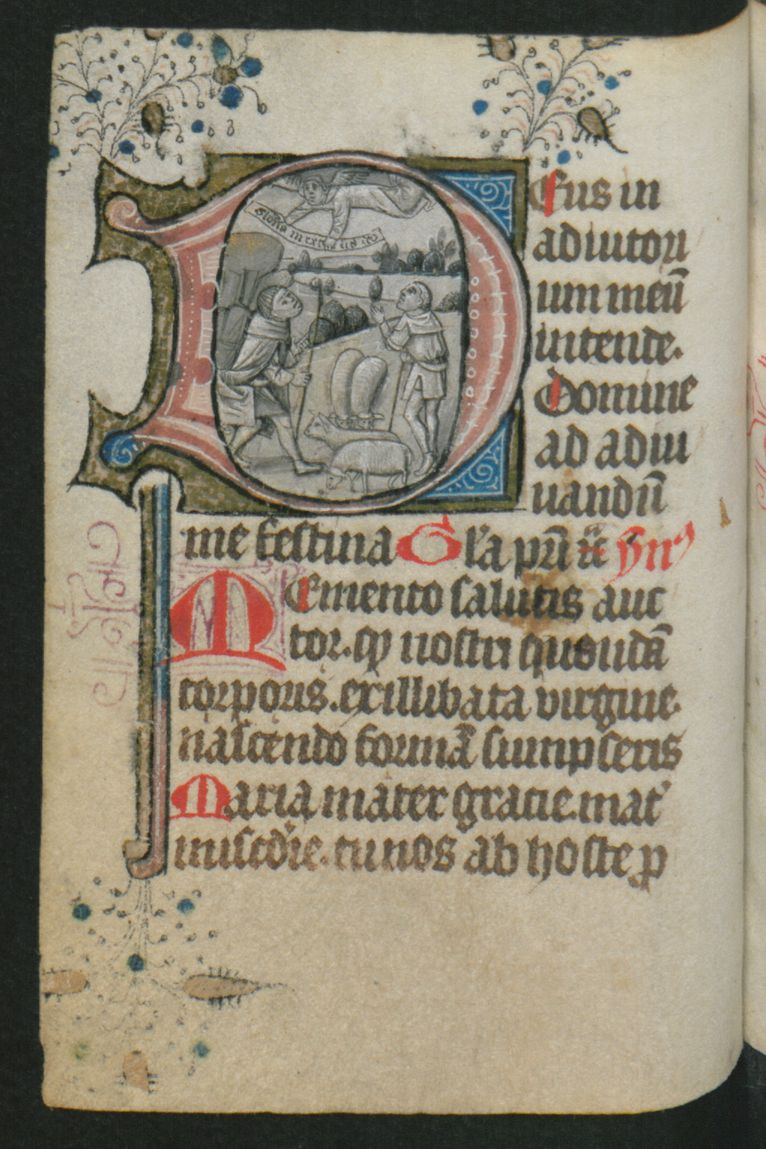 gloria in excelsis deo
Deus in
adiutori
um meū
intende.
Domine
ad adiu
uandū
me festina Gl'a pr̄i ⁊ ym̄⁹
Memento salutis auc
tor. qꝫ nostri quōdā
corporis. ex illibata virgine.
nascendo formā sumpseris
Maria mater gracie. mat'
miscd'ie. tu nos ab hoste p